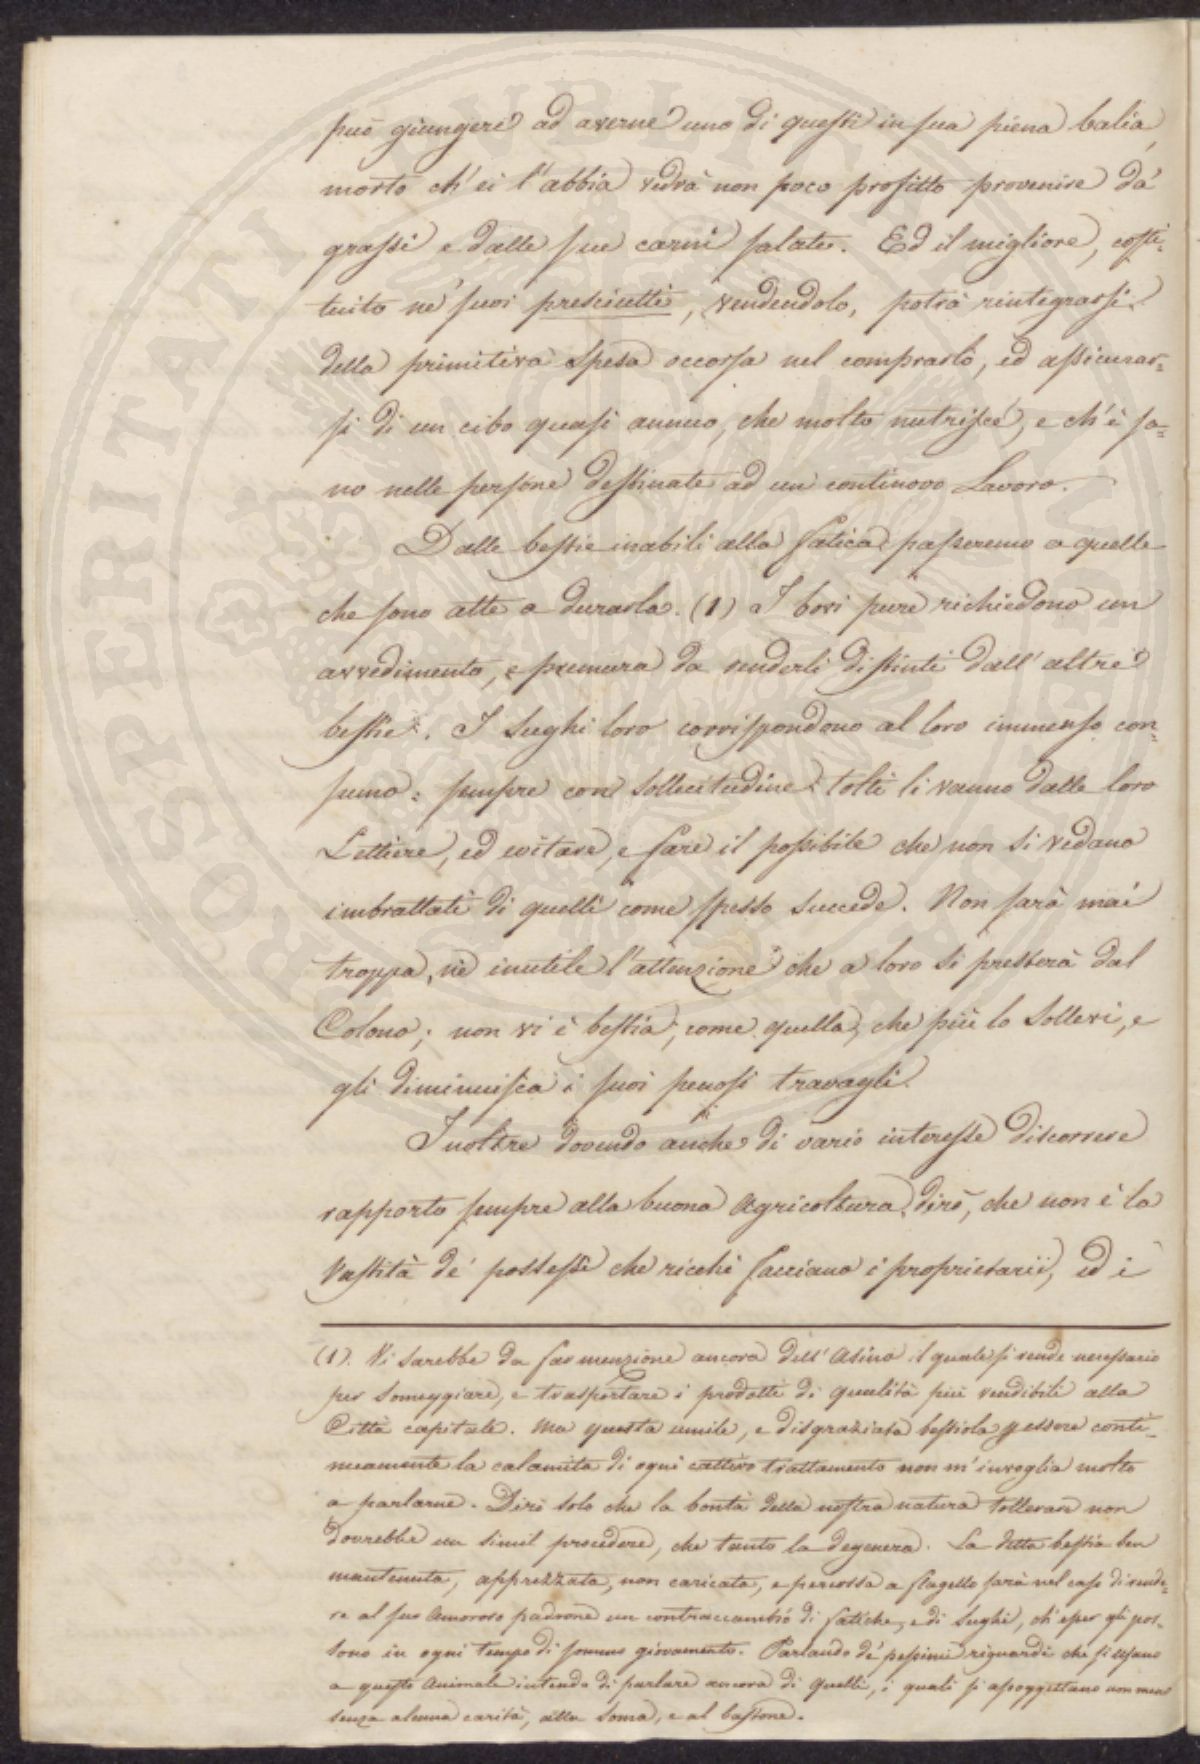 può giungere ad averne uno di questi in sua piena balìa,
morto ch'ei l'abbia vedrà non poco profitto provenire da'
grassi e dalle sue carni salate. Ed il migliore, costi-
tuito ne' suoi presciutti, vendendolo, potrà rintegrarsi
della primitiva spesa occorsa nel comprarlo, ed assicurar-
si di un cibo quasi annuo, che molto nutrisce, e ch'è sa-
no nelle persone destinate ad un continovo Lavoro.
Dalle bestie inabili alla fatica passeremo a quelle
che sono atte a durarla. (1) I bovi pure richiedono un
avvedimento, e premura da renderli distinti dall'altre
bestie. I sughi loro corrispondono al loro immenso con-
sumo: sempre con sollecitudine tolti li vanno dalle loro
Lettiere, ed evitare, e fare il possibile che non si vedano
imbrattati di quelli come spesso succede. Non sarà mai
troppa, nè inutile l'attenzione che a loro si presterà dal
Colono; non vi è bestia, come quella, che più lo sollevi, e
gli diminuisca i suoi penosi travagli.
Inoltre dovendo anche di vario interesse discorrere
rapporto sempre alla buona Agricoltura, dirò, che non è la
Vastità de' possessi che ricchi facciano i proprietarii, ed i
(1). Vi sarebbe da far menzione ancora dell'Asino il quale si rende necessario
per someggiare, e trasportare i prodotti di qualità più vendibili alla
Città capitale. Ma questa umile, e disgraziata bestiola p essere conti-
nuamente la calamita di ogni cattivo trattamento non m'invoglia molto
a parlarne. Dirò solo che la bontà della nostra natura tollerare non
dovrebbe un simil procedere, che tanto la degenera. La detta bestia ben
mantenuta, apprezzata, non caricata, e percossa a flagello sarà nel caso di rende-
re al suo Amoroso padrone un contraccambio di fatiche, e di sughi, ch'esser gli pos-
sono in ogni tempo di sommo giovamento. Parlando de' pessimi riguardi che si usano
a questo Animale intendo di parlare ancora di quelli, i quali si assoggettano non meno
senza alcuna carità, alla Soma, e al bastone.